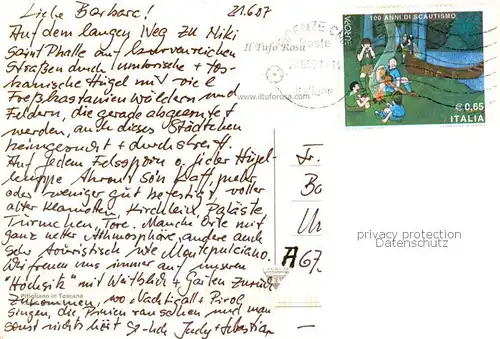 Liebe Barbara! 21.6.07
Auf dem langen Weg zu Niki
Saint Phalle auf kurvenreichen
Straßen durch umbrische + tos-
kanische Hügel mit viel
Eßkastanien Wäldern und
Feldern, die gerade abgeerntet
werden, auch dieses Städtchen
heimgesucht + durchstreift.
Auf jedem Felssporn o. jeder Hügel-
kuppe thront so'n Kaff, mehr
oder weniger gut befestigt, voller
alter Klamotten, Kirchlein, Paläste
Türmchen, Tore. Manche Orte mit
ganz netter Athmosphäre, andere auch
sehr touristisch wie Montepulciano.
Wir freuen uns immer auf unseren
"Hochsitz" mit Weitblick + Garten zurück
zukommen, wo Nachtigall + Pirol
singen, die Pinien rauschen und man
sonst nichts hört Judy + Sebastian
Pitigliano in Toscana
Il Tufo Rosa
www.iltuforosa.com
Poste
Italiane
EUROPA
100 ANNI DI SCAUTISMO
€ 0,65
ITALIA
Fr.
Ba
A 67
privacy protection
Datenschutz